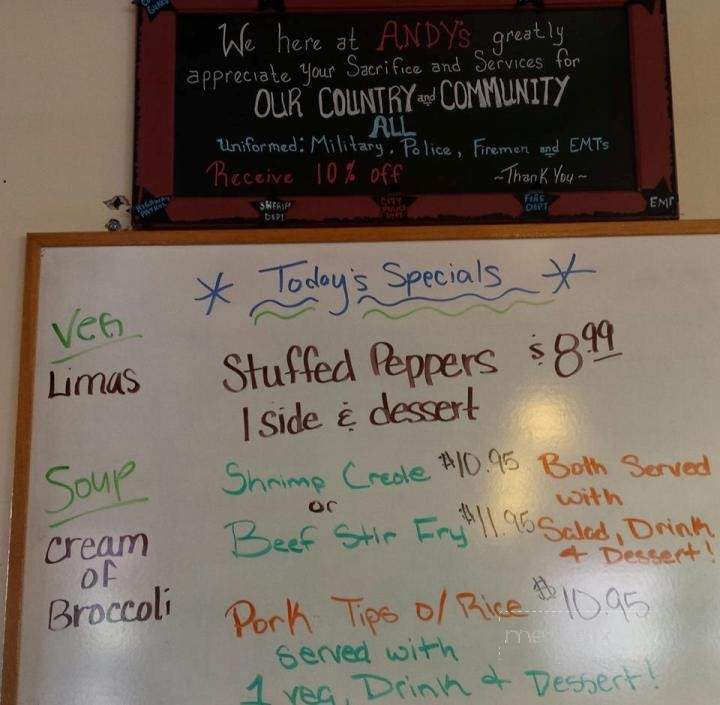 We here at ANDY's greatly
appreciate Your Sacrifice and Services for
OUR COUNTRY and COMMUNITY
ALL
Uniformed: Military, Police, Firemen and EMTs
Receive 10% off
~Thank You~
HIGHWAY PATROL
SHERIFF DEPT
CITY POLICE DEPT
FIRE DEPT
EMT
* Today's Specials *
Veg
Limas
Stuffed Peppers $8.99
1 side & dessert
Soup
cream
of
Broccoli
Shrimp Creole $10.95
or
Beef Stir Fry $11.95
Both Served
with
Salad, Drink
& Dessert!
Pork Tips o/ Rice $10.95
served with
1 veg, Drink & Dessert!